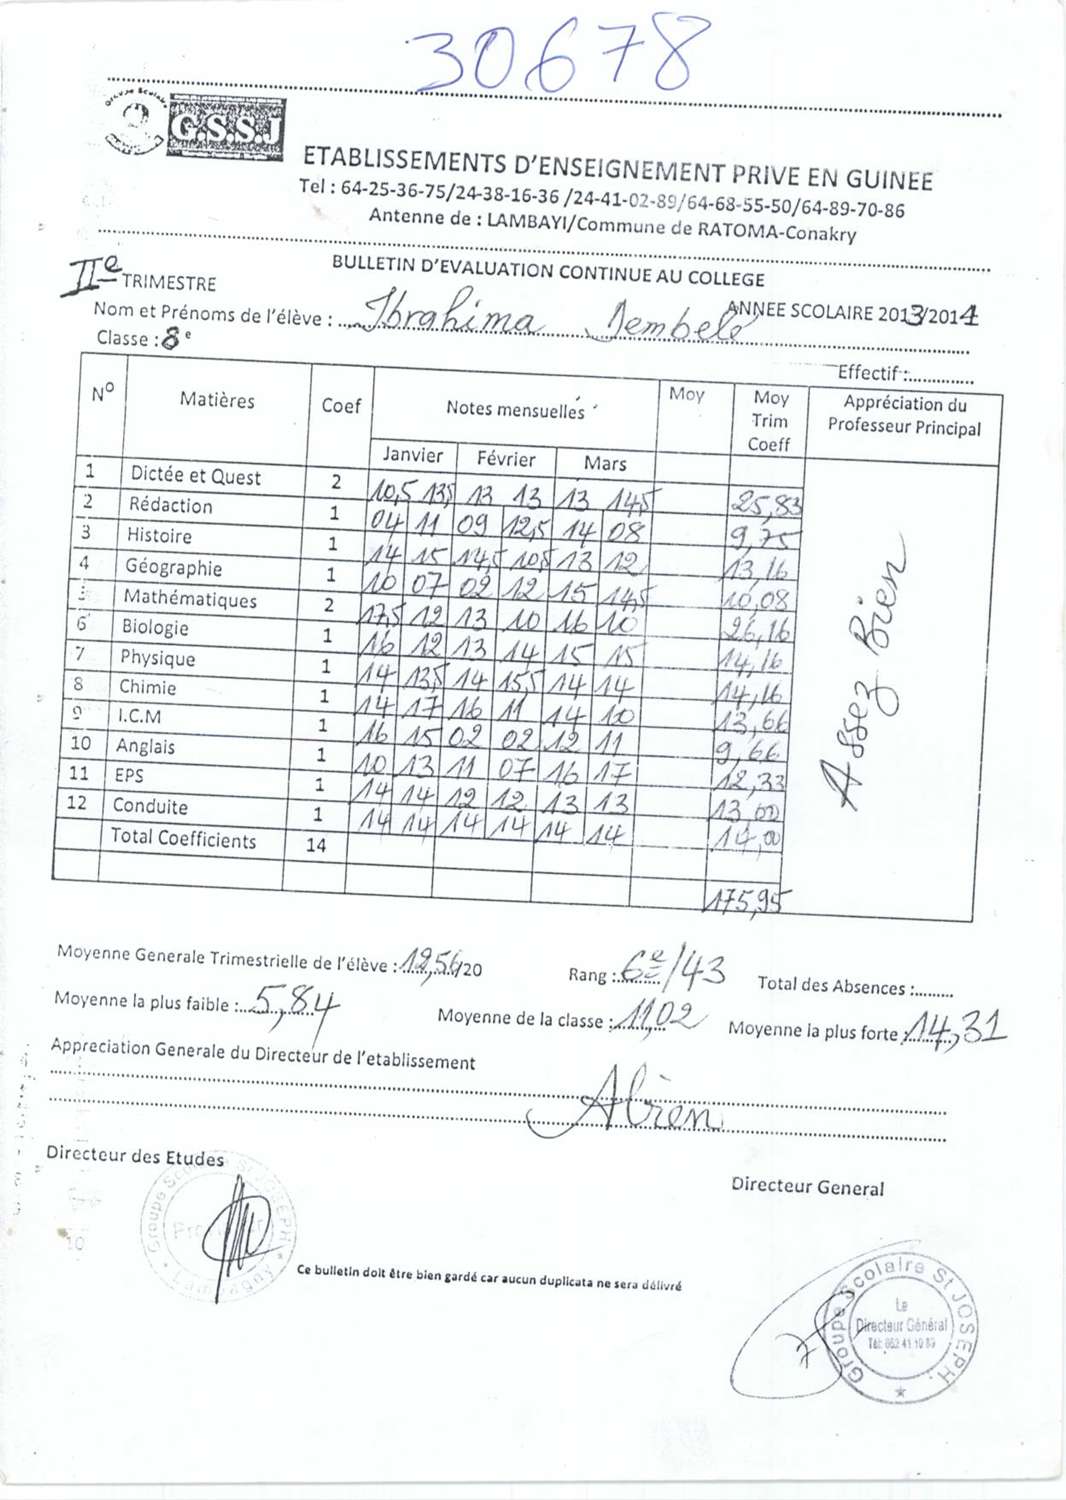 30678
Groupe Scolaire
G.S.S.J
ETABLISSEMENTS D'ENSEIGNEMENT PRIVE EN GUINEE
Tel : 64-25-36-75/24-38-16-36 /24-41-02-89/64-68-55-50/64-89-70-86
Antenne de : LAMBAYI/Commune de RATOMA-Conakry
BULLETIN D'EVALUATION CONTINUE AU COLLEGE
IIe TRIMESTRE
ANNEE SCOLAIRE 2013/2014
Nom et Prénoms de l'élève : Ibrahima Dembele
Classe : 8e
Effectif :..............
N° Matières Coef Notes mensuelles Moy Moy Trim Coeff Appréciation du Professeur Principal
Janvier Février Mars
1 Dictée et Quest 2 10,5 13,5 13 13 13 14,5 25,83
2 Rédaction 1 04 11 09 12,5 14 08 9,75
3 Histoire 1 14 15 14,5 10,5 13 12 13,16
4 Géographie 1 10 07 02 12 15 14,5 10,08
5 Mathématiques 2 17,5 12 13 10 16 10 26,16
6 Biologie 1 16 12 13 14 15 15 14,16
7 Physique 1 14 13,5 14 15,5 14 14 14,16
8 Chimie 1 14 17 16 11 14 10 13,66
9 I.C.M 1 16 15 02 02 12 11 9,66
10 Anglais 1 10 13 11 07 16 17 12,33
11 EPS 1 14 14 12 12 13 13 13,00
12 Conduite 1 14 14 14 14 14 14 14,00
Total Coefficients 14
175,95
Assez Bien
Moyenne Generale Trimestrielle de l'élève : 12,56/20 Rang : 6e/43 Total des Absences :.........
Moyenne la plus faible : 5,84 Moyenne de la classe : 11,02 Moyenne la plus forte : 14,31
Appreciation Generale du Directeur de l'etablissement
ABien
Directeur des Etudes
Directeur General
Groupe Scolaire St JOSEPH
Ce bulletin doit être bien gardé car aucun duplicata ne sera délivré
Groupe Scolaire St JOSEPH.
Le
Directeur Général